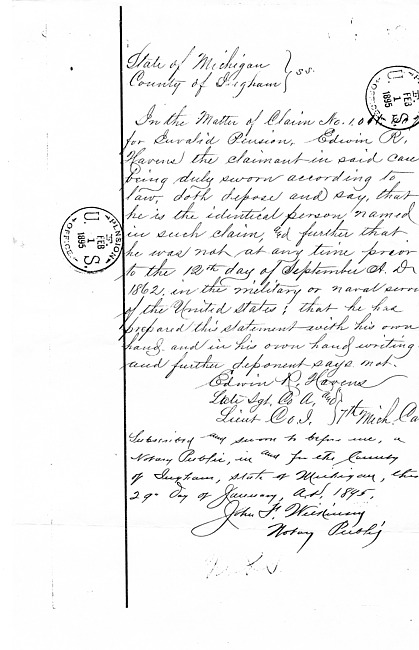 State of Michigan } ss.
County of Ingham
In the Matter of Claim No.
for Invalid Pension, Edwin R.
Havens the claimant in said case
being duly sworn according to
law, doth depose and say, that
he is the identical person named
in such claim, and further that
he was not at any time prior
to the 12th day of September A. D.
1862, in the military or naval
of the United States; that he has
prepared this statement with his own
hand and in his own hand writing
and further deponent says not.
Edwin R. Havens
Late Sgt. Co A, and
Lieut Co. I. } 7th Mich. Ca
Subscribed and sworn to before me, a
Notary Public, in and for the County
of Ingham, State of Michigan, this
29th Day of January, A.D. 1895.
John F.
Notary Public
U.S. PENSION OFFICE
FEB 1 1895
U.S. PENSION OFFICE
FEB 1 1895